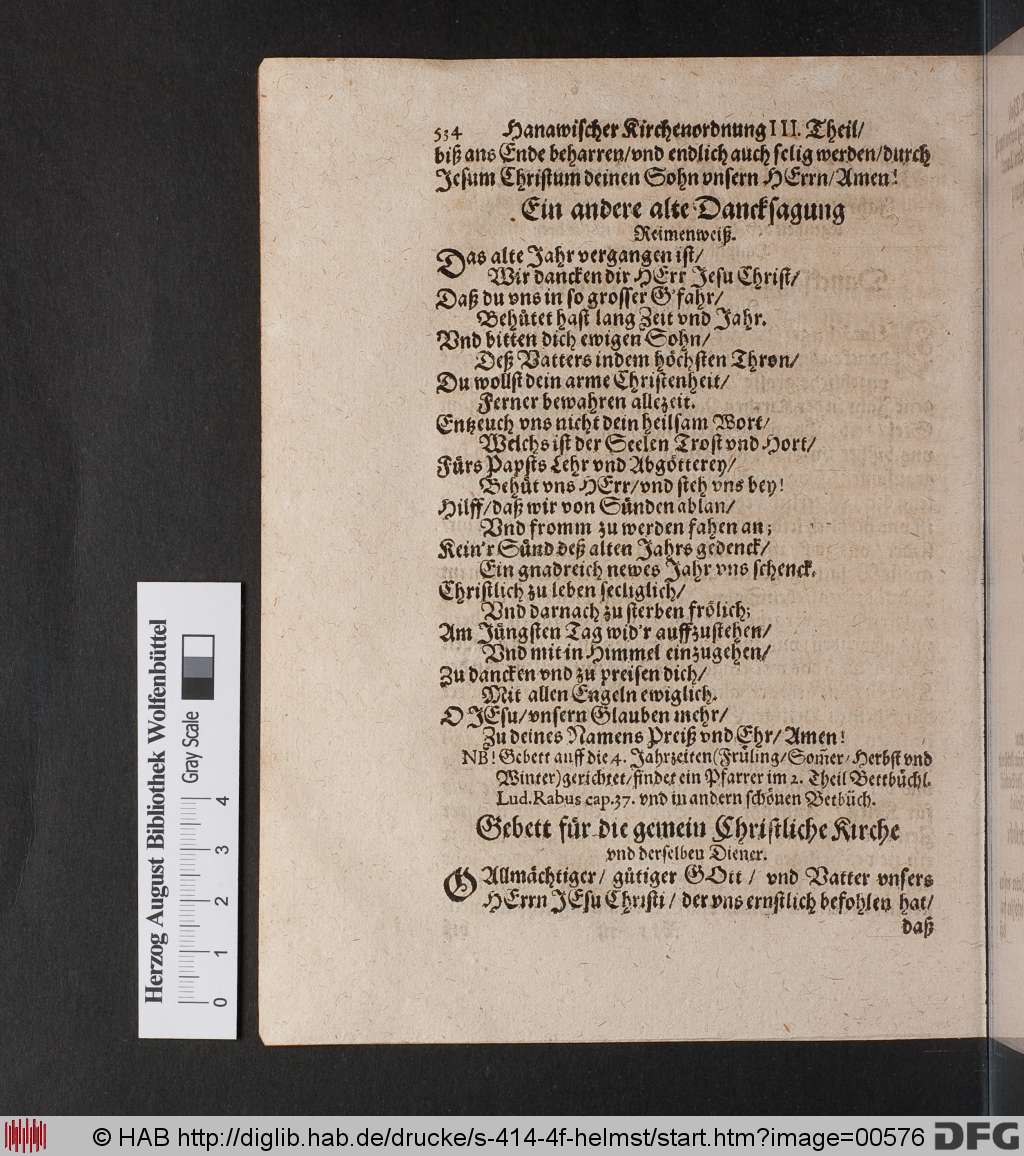 534 Hanawischer Kirchenordnung III. Theil/
biß ans Ende beharren/vnd endlich auch selig werden/durch
Jesum Christum deinen Sohn vnsern HErrn/Amen!
Ein andere alte Dancksagung
Reimenweiß.
Das alte Jahr vergangen ist/
Wir dancken dir HErr Jesu Christ/
Daß du vns in so grosser G'fahr/
Behütet hast lang Zeit vnd Jahr.
Vnd bitten dich ewigen Sohn/
Deß Vatters in dem höchsten Thron/
Du wollst dein arme Christenheit/
Ferner bewahren allezeit.
Entzeuch vns nicht dein heilsam Wort/
Welchs ist der Seelen Trost vnd Hort/
Fürs Papsts Lehr vnd Abgötterey/
Behüt vns HErr/vnd steh vns bey!
Hilff/daß wir von Sünden ablan/
Vnd fromm zu werden fahen an;
Kein'r Sünd deß alten Jahrs gedenck/
Ein gnadreich newes Jahr vns schenck.
Christlich zu leben seeliglich/
Vnd darnach zu sterben frölich;
Am Jüngsten Tag wid'r auffzustehen/
Vnd mit in Himmel einzugehen/
Zu dancken vnd zu preisen dich/
Mit allen Engeln ewiglich.
O JEsu/vnsern Glauben mehr/
Zu deines Namens Preiß vnd Ehr/Amen!
NB! Gebett auff die 4. Jahrzeiten(Früling/Som̃er/Herbst vnd
Winter)gerichtet/findet ein Pfarrer im 2. Theil Bettbüchl.
Lud. Rabus cap. 37. vnd in andern schönen Betbüch.
Gebett für die gemein Christliche Kirche
vnd derselben Diener.
O Allmächtiger/ gütiger GOtt/ vnd Vatter vnsers
HErrn JEsu Christi/ der vns ernstlich befohlen hat/
daß
Herzog August Bibliothek Wolfenbüttel
Gray Scale
0 1 2 3 4
© HAB http://diglib.hab.de/drucke/s-414-4f-helmst/start.htm?image=00576 DFG